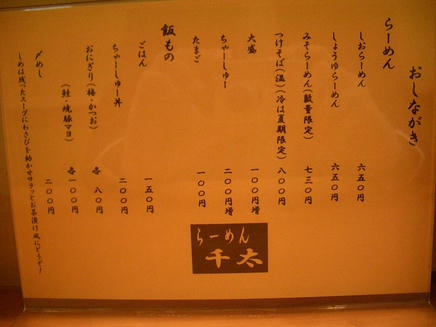 おしながき
らーめん
しおらーめん 六五〇円
しょうゆらーめん 六五〇円
みそらーめん(数量限定) 七三〇円
つけそば(温)(冷は夏期限定) 八〇〇円
大盛 一〇〇円増
ちゃーしゅー 二〇〇円増
たまご 一〇〇円
飯もの
ごはん 一五〇円
ちゃーしゅー丼 二〇〇円
おにぎり(梅・かつお) 各 八〇円
(鮭・焼豚マヨ) 各一〇〇円
〆めし 二〇〇円
しめは残ったスープにわさびを効かせサラッとお茶漬け風にどうぞ!
らーめん
千太